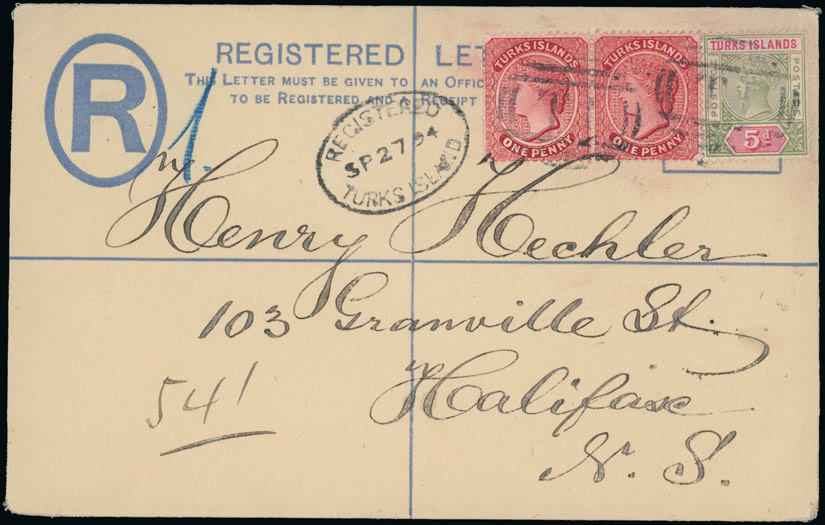 REGISTERED LET
THIS LETTER MUST BE GIVEN TO AN OFFIC
TO BE REGISTERED AND A RECEIPT
R
1.
REGISTERED
SP 27 94
TURKS ISLAND
TURKS ISLANDS
ONE PENNY
TURKS ISLANDS
ONE PENNY
TURKS ISLANDS
POSTAGE
5d
Henry Hechler
103 Granville St.
Halifax
N. S.
541